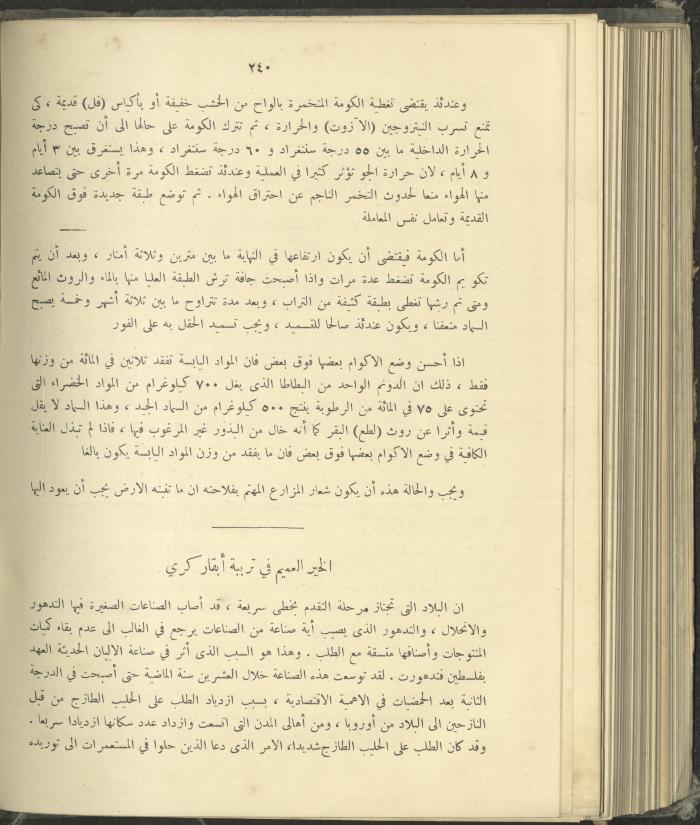 ٢٤٠
وعندئذ يقتضى تغطية الكومة المتخمرة بالواح من الخشب خفيفة أو بأكياس (فل) قديمة ، كى
تمنع تسرب النيتروجين (الآزوت) والحرارة ، ثم تترك الكومة على حالها الى أن تصبح درجة
الحرارة الداخلية ما بين ٥٥ درجة سنتغراد و ٦٠ درجة سنتغراد ، وهذا يستغرق بين ٣ أيام
و ٨ أيام ، لان حرارة الجو تؤثر كثيرا في العملية وعندئذ تضغط الكومة مرة أخرى حتى يتصاعد
منها الهواء منعا لحدوث التخمر الناجم عن احتراق الهواء . ثم توضع طبقة جديدة فوق الكومة
القديمة وتعامل نفس المعاملة
أما الكومة فيقتضى أن يكون ارتفاعها في النهاية ما بين مترين وثلاثة أمتار ، وبعد أن يتم
تكويم الكومة تضغط عدة مرات واذا أصبحت جافة ترش الطبقة العليا منها بالماء والروث المائع
ومتى تم رشها تغطى بطبقة كثيفة من التراب ، وبعد مدة تتراوح ما بين ثلاثة أشهر وخمسة يصبح
السماد متعفنا ، ويكون عندئذ صالحا للتسميد ، ويجب تسميد الحقل به على الفور
اذا أحسن وضع الاكوام بعضها فوق بعض فان المواد اليابسة تفقد ثلاثين في المائة من وزنها
فقط ، ذلك ان الدونم الواحد من البطاطا الذى يغل ٧٠٠ كيلوغرام من المواد الخضراء التى
تحتوى على ٧٥ في المائة من الرطوبة ينتج ٥٠٠ كيلوغرام من السماد الجيد ، وهذا السماد لا يقل
قيمة وأثرا عن روث (لطع) البقر كما أنه خال من البذور غير المرغوب فيها ، فاذا لم تبذل العناية
الكافية في وضع الاكوام بعضها فوق بعض فان ما يفقد من وزن المواد اليابسة يكون بالغا
ويجب والحالة هذه أن يكون شعار المزارع المهتم بفلاحته ان ما تنبته الارض يجب أن يعود اليها
الخير العميم في تربية أبقار كري
ان البلاد التى تجتاز مرحلة التقدم بخطى سريعة ، قد أصاب الصناعات الصغيرة فيها التدهور
والانحلال ، والتدهور الذى يصيب أية صناعة من الصناعات يرجع في الغالب الى عدم بقاء كميات
المنتوجات وأصنافها متسقة مع الطلب . وهذا هو السبب الذى أثر في صناعة الالبان الحديثة العهد
بفلسطين فتدهورت . لقد توسعت هذه الصناعة خلال العشرين سنة الماضية حتى أصبحت في الدرجة
الثانية بعد الحمضيات في الاهمية الاقتصادية ، بسبب ازدياد الطلب على الحليب الطازج من قبل
النازحين الى البلاد من أوروبا ، ومن أهالى المدن التى اتسعت وازداد عدد سكانها ازديادا سريعا .
وقد كان الطلب على الحليب الطازج شديدا، الامر الذى دعا الذين حلوا في المستعمرات الى توريده